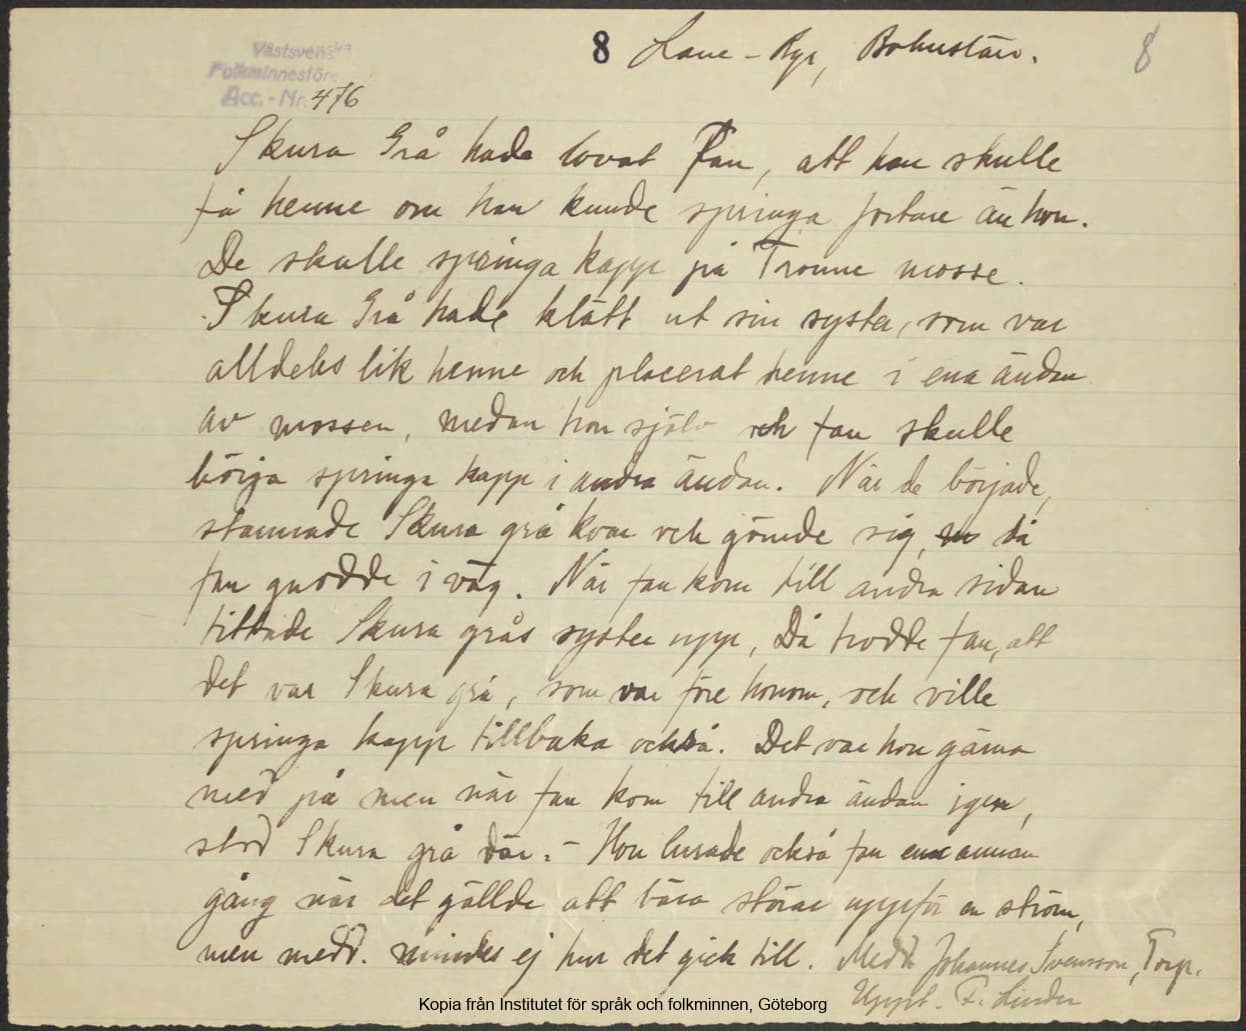 8 Lane-Ryr, Bohuslän. 8
Västsvenska
Folkminnesföre
Acc.-Nr. 476
Skura Grå hade lovat Fan, att han skulle
få henne om han kunde springa fortare än hon.
De skulle springa kapp på Tronne mosse.
Skura Grå hade klätt ut sin syster, som var
alldeles lik henne och placerat henne i ena ändan
av mossen, medan hon själv och fan skulle
börja springa kapp i andra ändan. När de började,
stannade Skura grå kvar och gömde sig, då
fan gnodde i väg. När fan kom till andra sidan
tittade Skura grås syster upp, Då trodde fan, att
det var Skura grå, som var före honom, och ville
springa kapp tillbaka också. Det var hon gärna
med på men när fan kom till andra ändan igen,
stod Skura grå där. - Hon lurade också fan en annan
gång när det gällde att bära störar uppför en ström,
men medd. mindes ej hur det gick till. Medd Johannes Svensson, Torp.
Uppt. F. Linder
Kopia från Institutet för språk och folkminnen, Göteborg